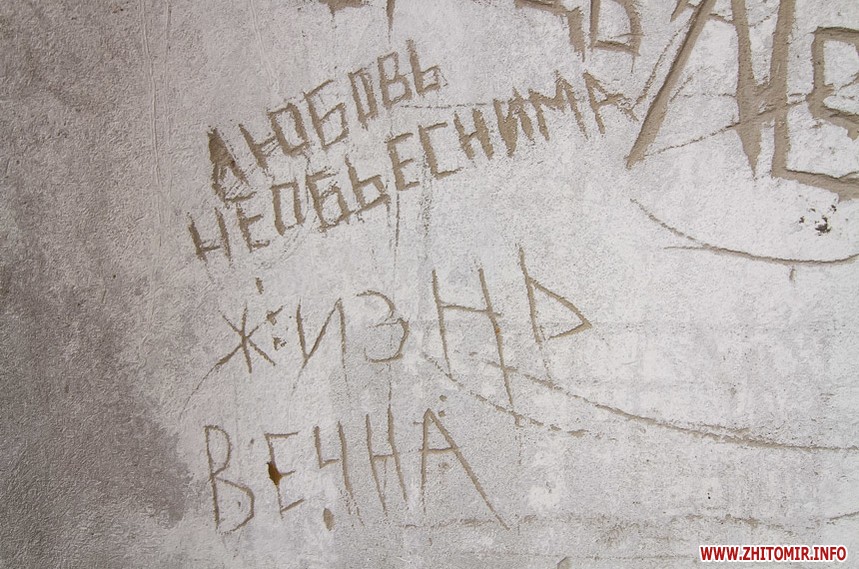 ЛЮБОВЬ
НЕОБЬЕСНИМА
ЖИЗНЬ
ВЕЧНА
WWW.ZHITOMIR.INFO